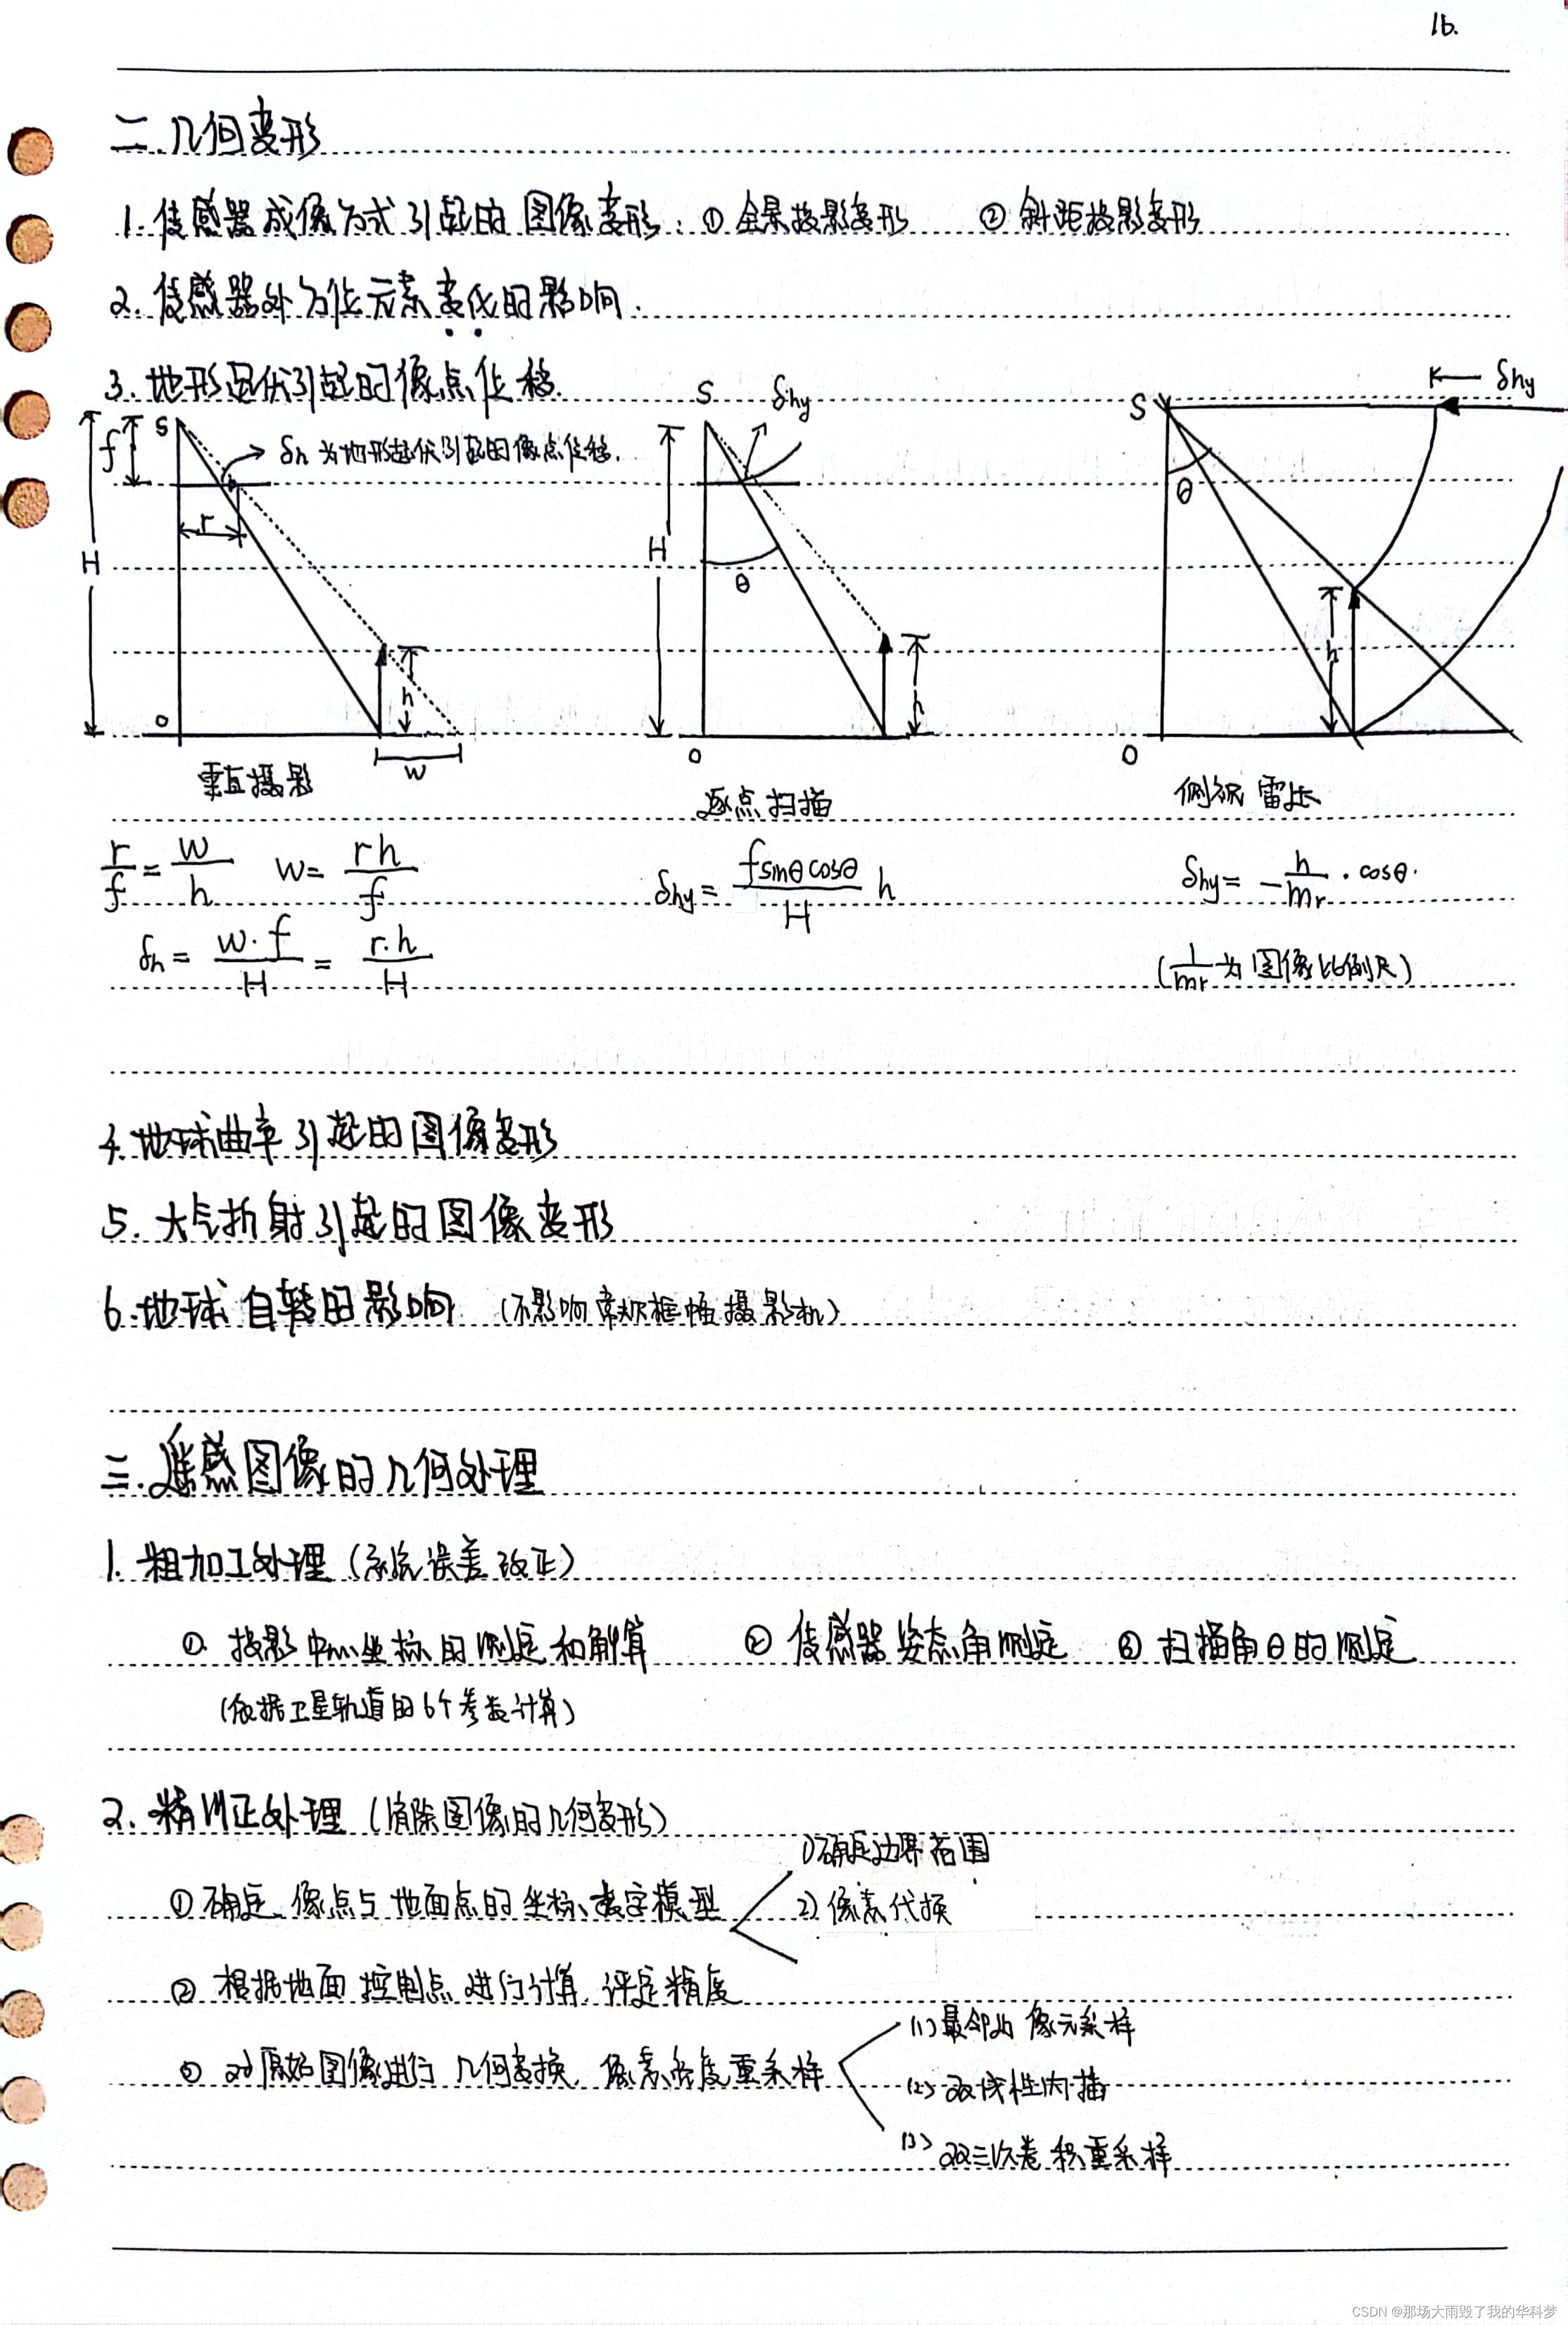 16.
二.几何变形
1.传感器成像方式引起的图像变形:①全景投影变形 ②斜距投影变形
2.传感器外方位元素变化的影响.
3.地形起伏引起的像点位移.
S
f
H
δh为地形起伏引起的像点位移.
r
h
O
w
垂直摄影
S
δhy
H
θ
h
O
逐点扫描
S
δhy
θ
h
O
侧视雷达
r/f = w/h w = rh/f
δh = w·f/H = r·h/H
δhy = fsinθcosθ/H h
δhy = -h/mr · cosθ.
(1/mr为图像比例尺)
4.地球曲率引起的图像变形
5.大气折射引起的图像变形
6.地球自转的影响 (不影响常规框幅摄影机)
三.遥感图像的几何处理
1.粗加工处理(系统误差改正)
①投影中心坐标的测定和解算 ②传感器姿态角测定 ③扫描角θ的测定
(依据卫星轨道的6个参数计算)
2.精纠正处理(消除图像的几何变形)
①确定像点与地面点的坐标、数学模型
1)确定边界范围
2)像素代换
②根据地面控制点进行计算,评定精度
③对原始图像进行几何变换,像素亮度重采样
(1)最邻近像元采样
(2)双线性内插
(3)双三次卷积重采样
CSDN @那场大雨毁了我的华科梦